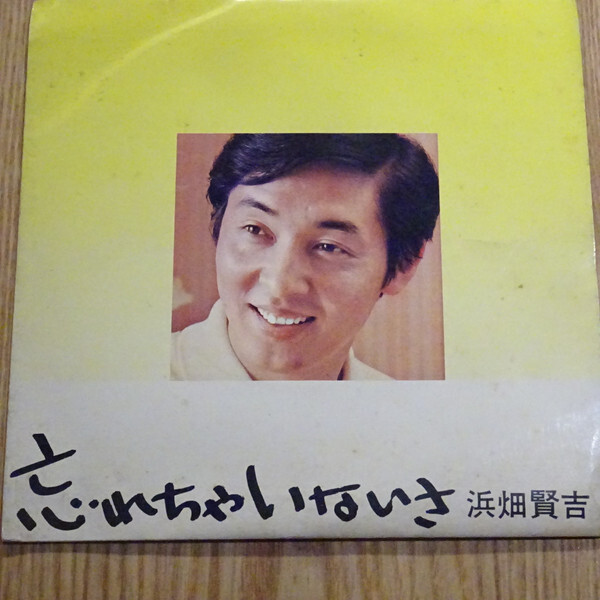 忘れちゃいないさ 浜畑賢吉